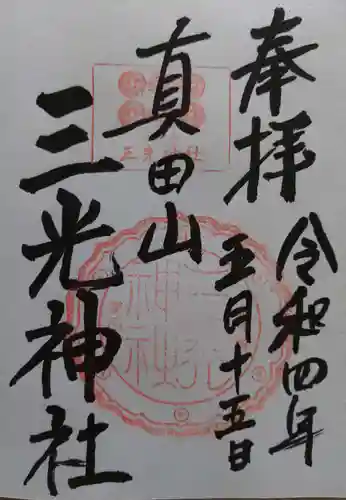 奉拝
令和四年
五月十五日
真田山
三光神社
三光神社